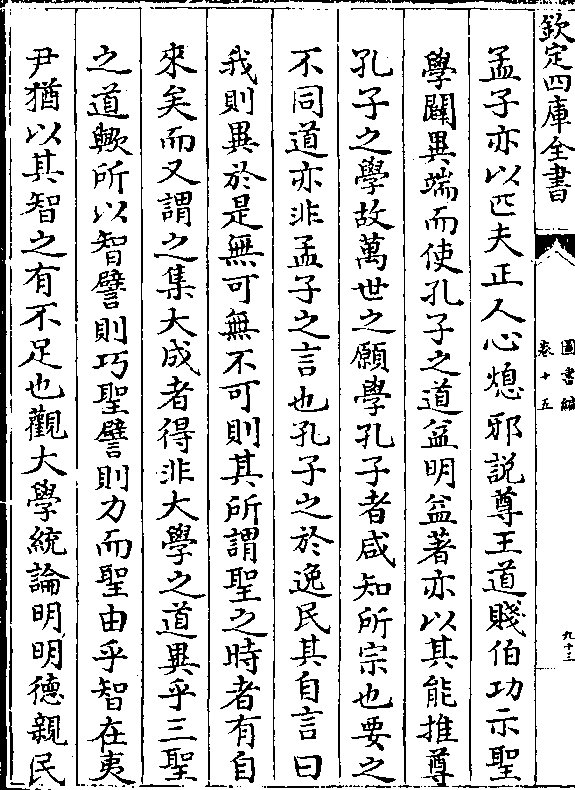 欽定四庫全書
圖書編
卷十五
九十三
孟子亦以匹夫正人心熄邪説尊王道賤伯功示聖
學闢異端而使孔子之道益明益著亦以其能推尊
孔子之學故萬世之願學孔子者咸知所宗也要之
不同道亦非孟子之言也孔子之於逸民其自言曰
我則異於是無可無不可則其所謂聖之時者有自
來矣而又謂之集大成者得非大學之道異乎三聖
之道歟所以智譬則巧聖譬則力而聖由乎智在夷
尹猶以其智之有不足也觀大學統論明明德親民